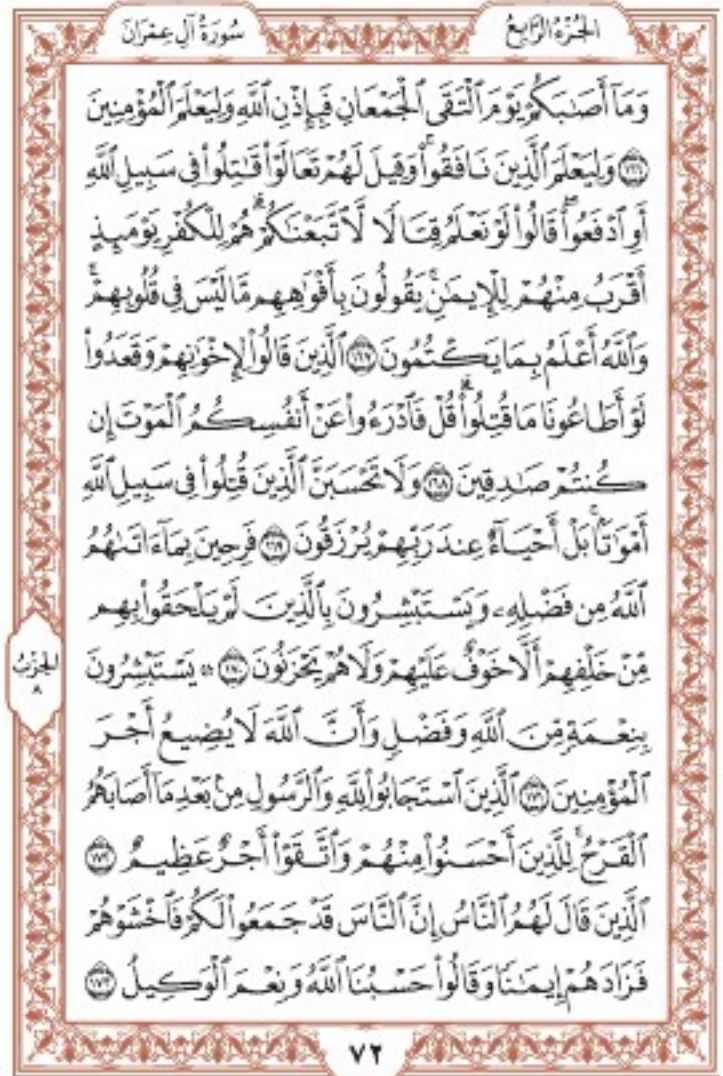 الجُزْءُ الرَّابِعُ
سُورَةُ آلِ عِمْرَانَ
وَمَآ أَصَـٰبَكُمْ يَوْمَ ٱلْتَقَى ٱلْجَمْعَانِ فَبِإِذْنِ ٱللَّهِ وَلِيَعْلَمَ ٱلْمُؤْمِنِينَ
١٦٦ وَلِيَعْلَمَ ٱلَّذِينَ نَافَقُوا۟ۚ وَقِيلَ لَهُمْ تَعَالَوْا۟ قَـٰتِلُوا۟ فِى سَبِيلِ ٱللَّهِ
أَوِ ٱدْفَعُوا۟ۖ قَالُوا۟ لَوْ نَعْلَمُ قِتَالًا لَّٱتَّبَعْنَـٰكُمْۗ هُمْ لِلْكُفْرِ يَوْمَئِذٍ
أَقْرَبُ مِنْهُمْ لِلْإِيمَـٰنِۚ يَقُولُونَ بِأَفْوَٰهِهِم مَّا لَيْسَ فِى قُلُوبِهِمْۚ
وَٱللَّهُ أَعْلَمُ بِمَا يَكْتُمُونَ ١٦٧ ٱلَّذِينَ قَالُوا۟ لِإِخْوَٰنِهِمْ وَقَعَدُوا۟
لَوْ أَطَاعُونَا مَا قُتِلُوا۟ۗ قُلْ فَٱدْرَءُوا۟ عَنْ أَنفُسِكُمُ ٱلْمَوْتَ إِن
كُنتُمْ صَـٰدِقِينَ ١٦٨ وَلَا تَحْسَبَنَّ ٱلَّذِينَ قُتِلُوا۟ فِى سَبِيلِ ٱللَّهِ
أَمْوَٰتًۢاۚ بَلْ أَحْيَآءٌ عِندَ رَبِّهِمْ يُرْزَقُونَ ١٦٩ فَرِحِينَ بِمَآ ءَاتَىٰهُمُ
ٱللَّهُ مِن فَضْلِهِۦ وَيَسْتَبْشِرُونَ بِٱلَّذِينَ لَمْ يَلْحَقُوا۟ بِهِم
مِّنْ خَلْفِهِمْ أَلَّا خَوْفٌ عَلَيْهِمْ وَلَا هُمْ يَحْزَنُونَ ١٧٠ ۞ يَسْتَبْشِرُونَ
بِنِعْمَةٍ مِّنَ ٱللَّهِ وَفَضْلٍ وَأَنَّ ٱللَّهَ لَا يُضِيعُ أَجْرَ
ٱلْمُؤْمِنِينَ ١٧١ ٱلَّذِينَ ٱسْتَجَابُوا۟ لِلَّهِ وَٱلرَّسُولِ مِنۢ بَعْدِ مَآ أَصَابَهُمُ
ٱلْقَرْحُۚ لِلَّذِينَ أَحْسَنُوا۟ مِنْهُمْ وَٱتَّقَوْا۟ أَجْرٌ عَظِيمٌ ١٧٢
ٱلَّذِينَ قَالَ لَهُمُ ٱلنَّاسُ إِنَّ ٱلنَّاسَ قَدْ جَمَعُوا۟ لَكُمْ فَٱخْشَوْهُمْ
فَزَادَهُمْ إِيمَـٰنًا وَقَالُوا۟ حَسْبُنَا ٱللَّهُ وَنِعْمَ ٱلْوَكِيلُ ١٧٣
الحِزْبُ
٨
٧٢